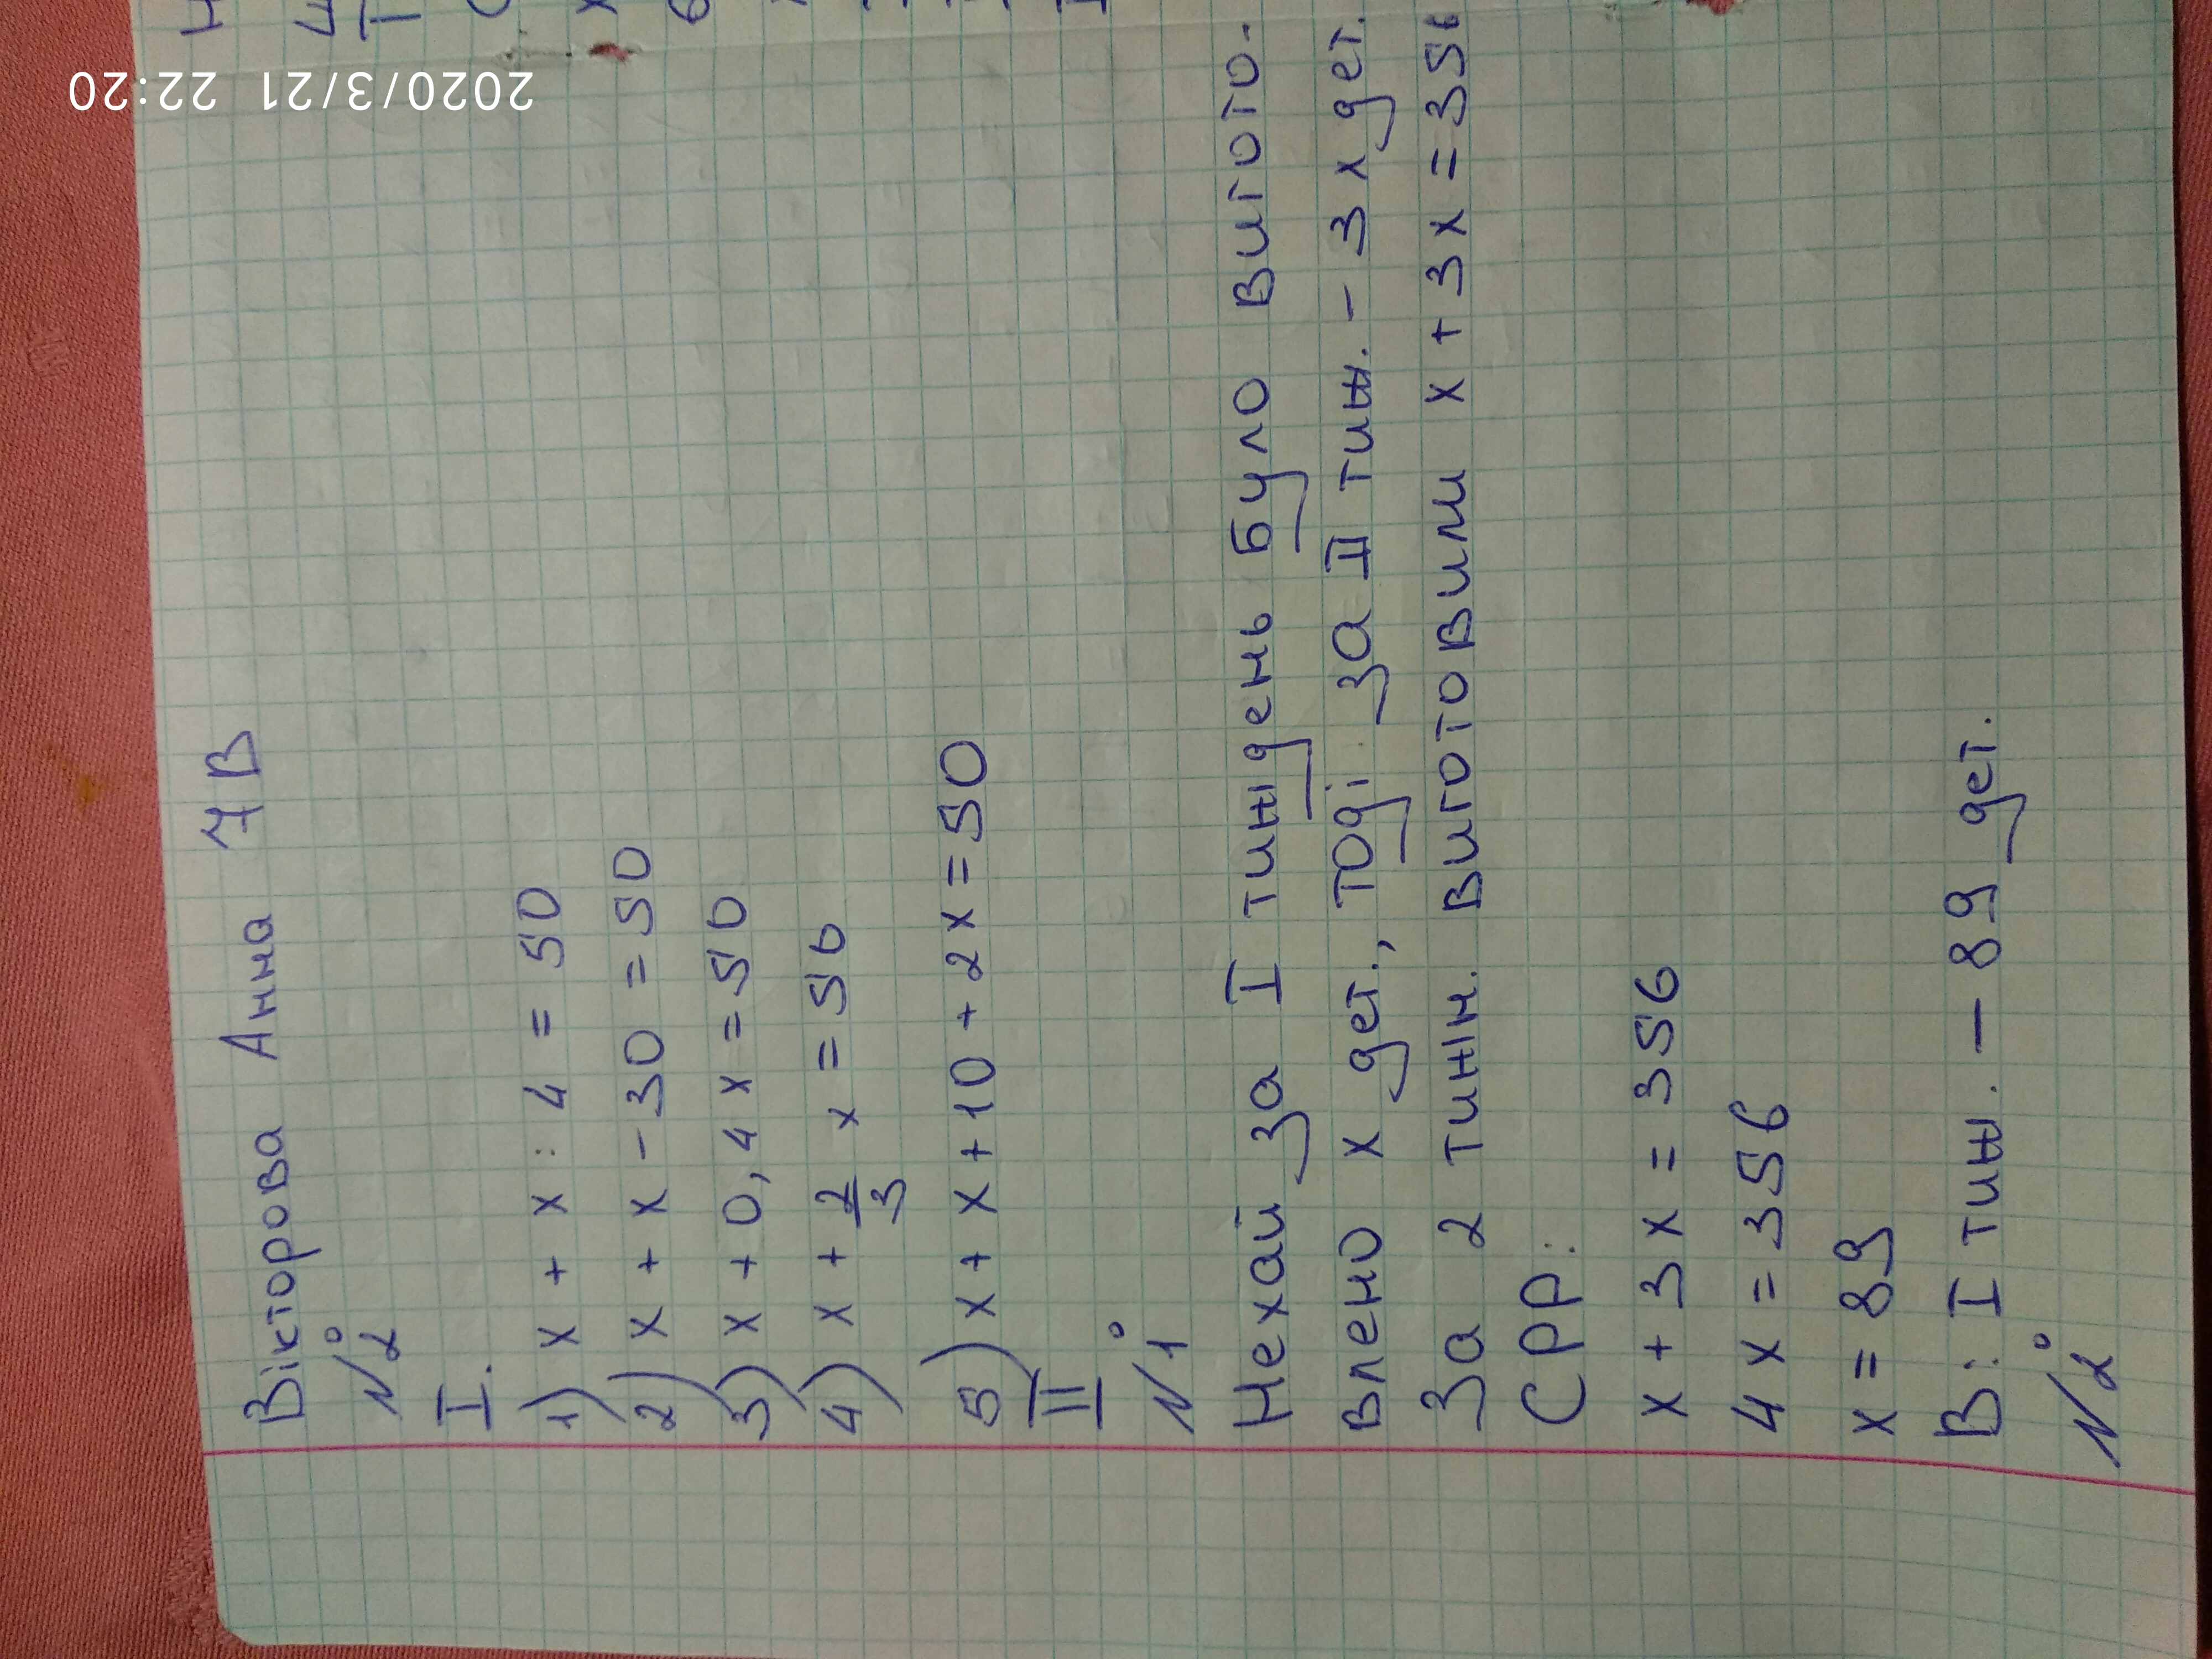 Вікторова Анна 7В
№2
I.
1) x + x : 4 = 50
2) x + x - 30 = 50
3) x + 0,4 x = 50
4) x + 2/3 x = 50
5) x + x + 10 + 2x = 50
II
№1
Нехай за I тиждень було вигото-
влено x дет., тоді за II тиж. - 3x дет.
За 2 тижн. виготовили x + 3x = 356
СРР:
x + 3x = 356
4x = 356
x = 89
В: I тиж. - 89 дет.
№2
2020/3/21 22:20